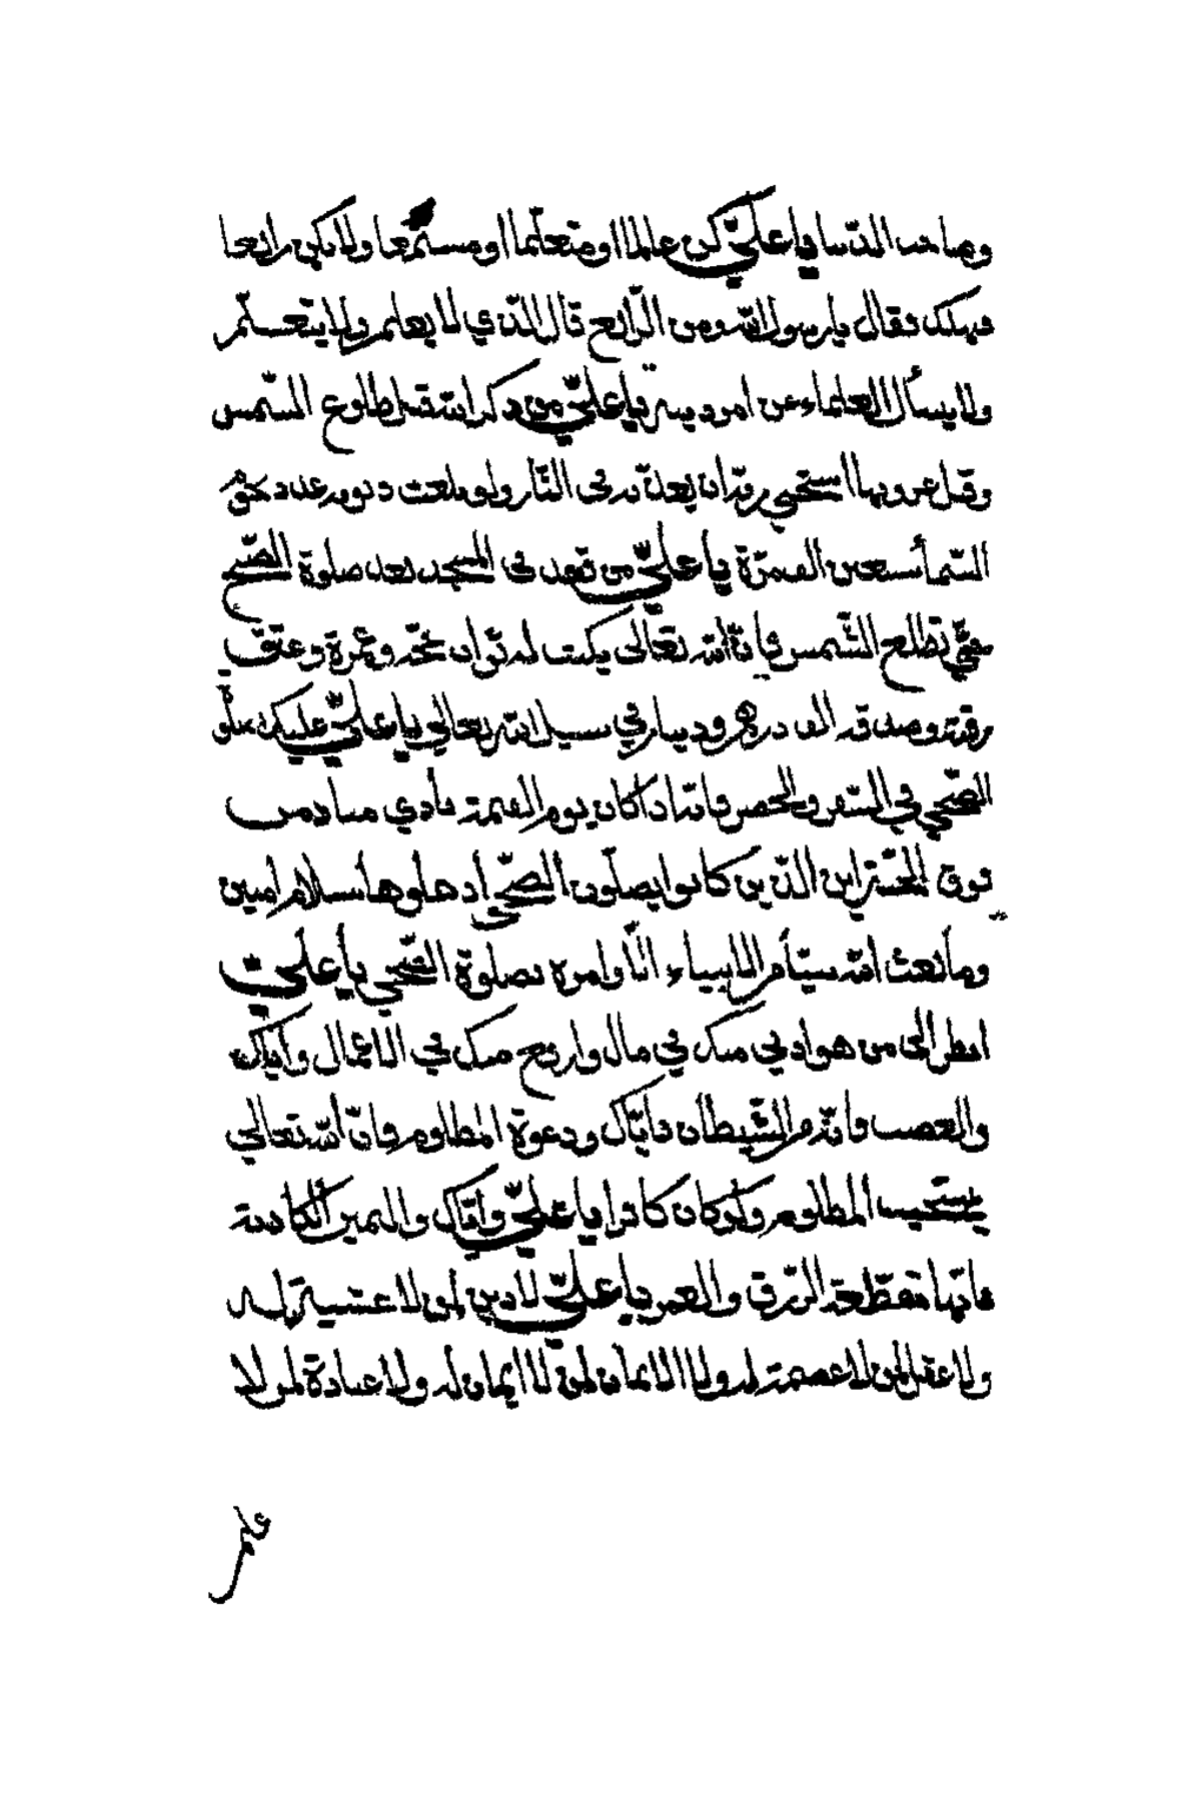 وما فيه الدنيا يا علي كن عالما او متعلما او مستمعا ولا تكن رابعا
فتهلك فقال يا رسول الله ومن الرابع قال الذي لا يعلم ولا يتعلم
ولا يسأل العلماء عن امر دينه يا علي من ذكر الله قبل طلوع الشمس
وقبل غروبها استحيى الله ان يعذبه في النار ولو بلغت ذنوبه عدد نجوم
السماء سبعين الف مرة يا علي من قعد في المسجد بعد صلوة الصبح
حتى تطلع الشمس فان الله تعالى يكتب له ثواب حجة وعمرة وعتق
رقبة وصدقة الف درهم ودينار في سبيل الله تعالى يا علي عليك بصلوة
الضحى في السفر والحضر فانه اذا كان يوم القيمة نادي مناد من
فوق الجنة اين الذين كانوا يصلون الضحى أدخلوها بسلام امنين
وما بعث الله نبيا من الانبياء الا وامره بصلوة الضحى يا علي
انظر الى من هو ادنى منك في مال وارفع منك في الاعمال واياك
والغضب فانه من الشيطان واياك ودعوة المظلوم فان الله تعالى
يستجيب المظلوم ولو كان كافرا يا علي واياك واليمين الكاذبة
فانها تنقطعة الرزق والعمر يا علي لا دين لمن لا خشية له
ولا عقل لمن لا عصمة له ولا الايمان لمن لا ايمان له ولا عبادة لمن لا
علم